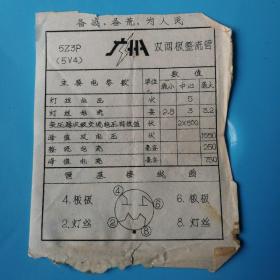 备战、备荒、为人民
5Z3P
(5V4)
广州
双两极整流管
主要电参数 单位 数值
最小 中心 最大
灯丝电压 伏 5
灯丝电流 安 2.8 3 3.2
变压器次级交流电压有效值 伏 2×500
峰值反电压 伏 1550
整流电流 毫安 250
峰值电流 毫安 750
管基接线图
4.板极
2.灯丝
6.板极
8.灯丝
4 6
2 8